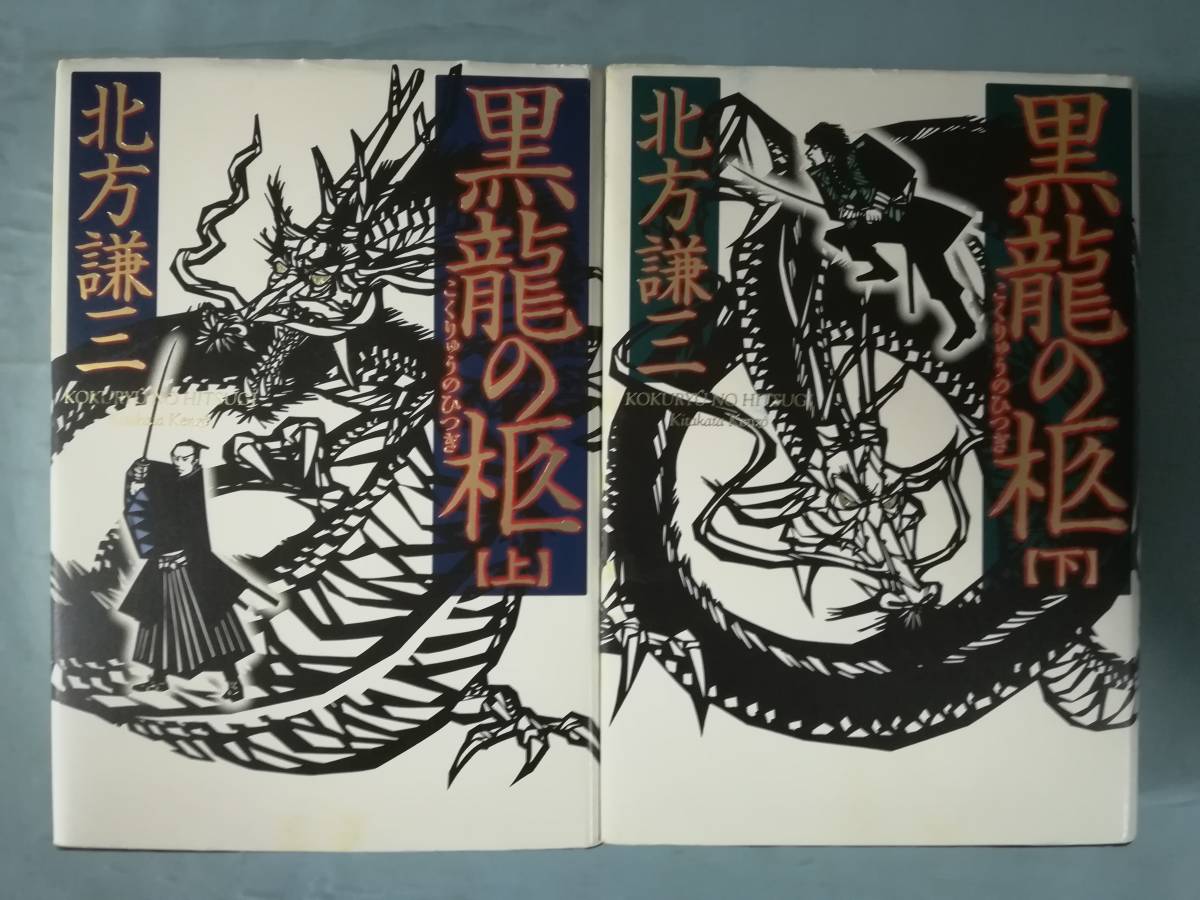 黒龍の柩
こくりゅうのひつぎ
【上】
北方謙三
KOKURYŪ NO HITSUGI
Kitakata Kenzō
黒龍の柩
こくりゅうのひつぎ
【下】
北方謙三
KOKURYŪ NO HITSUGI
Kitakata Kenzō